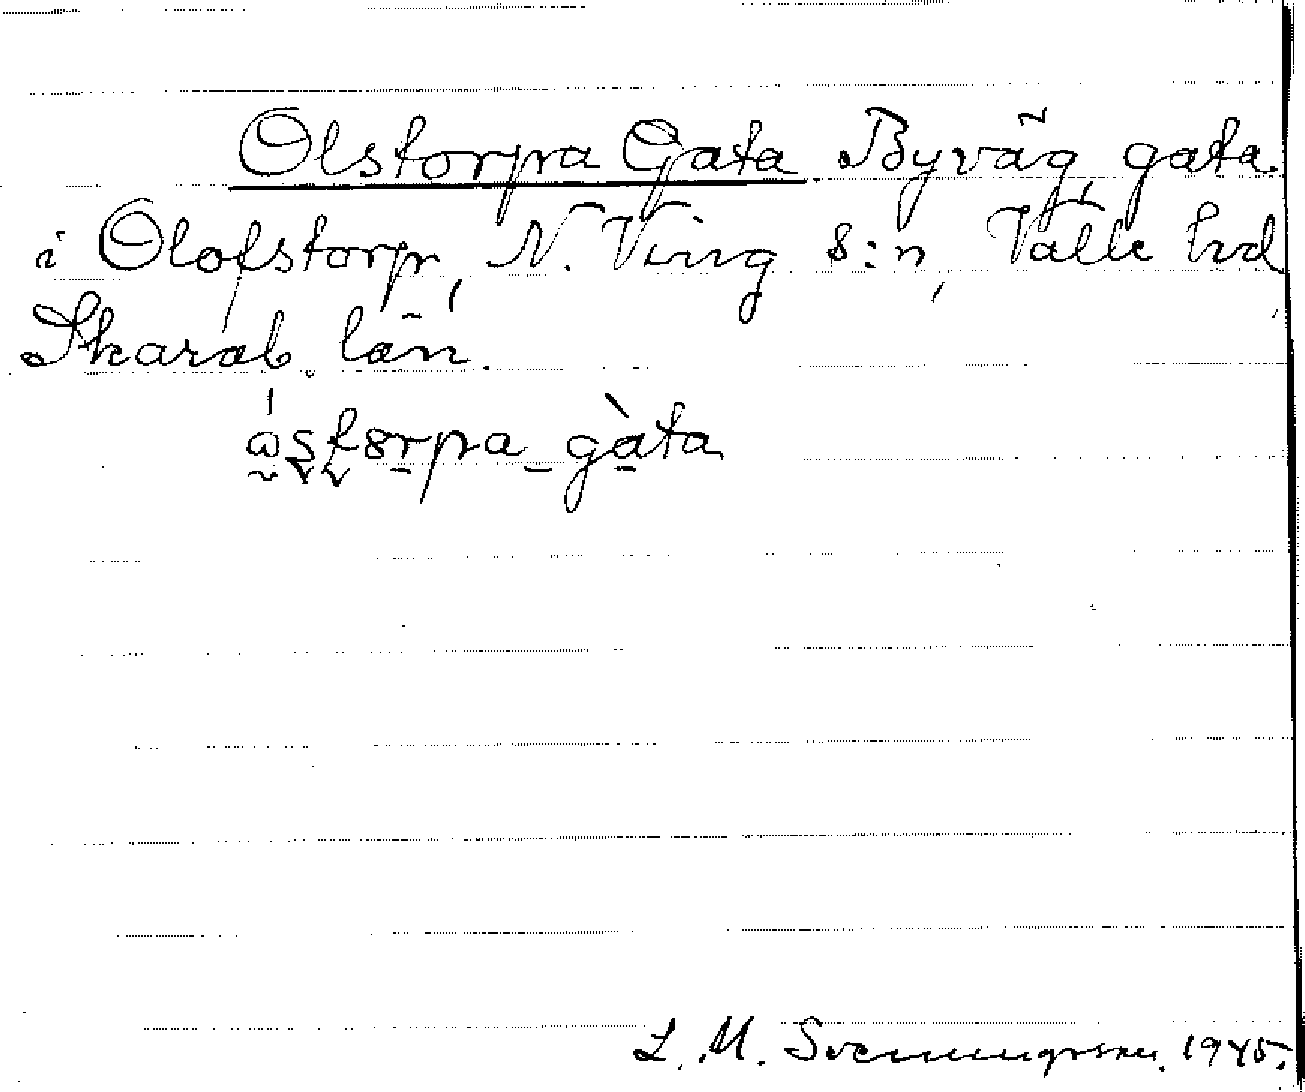 Olstorpa Gata Byväg, gata
i Olofstorp, N. Ving s:n, Valle hd,
Skarab. län.
gàta
L. M. Svenungsson. 1945.